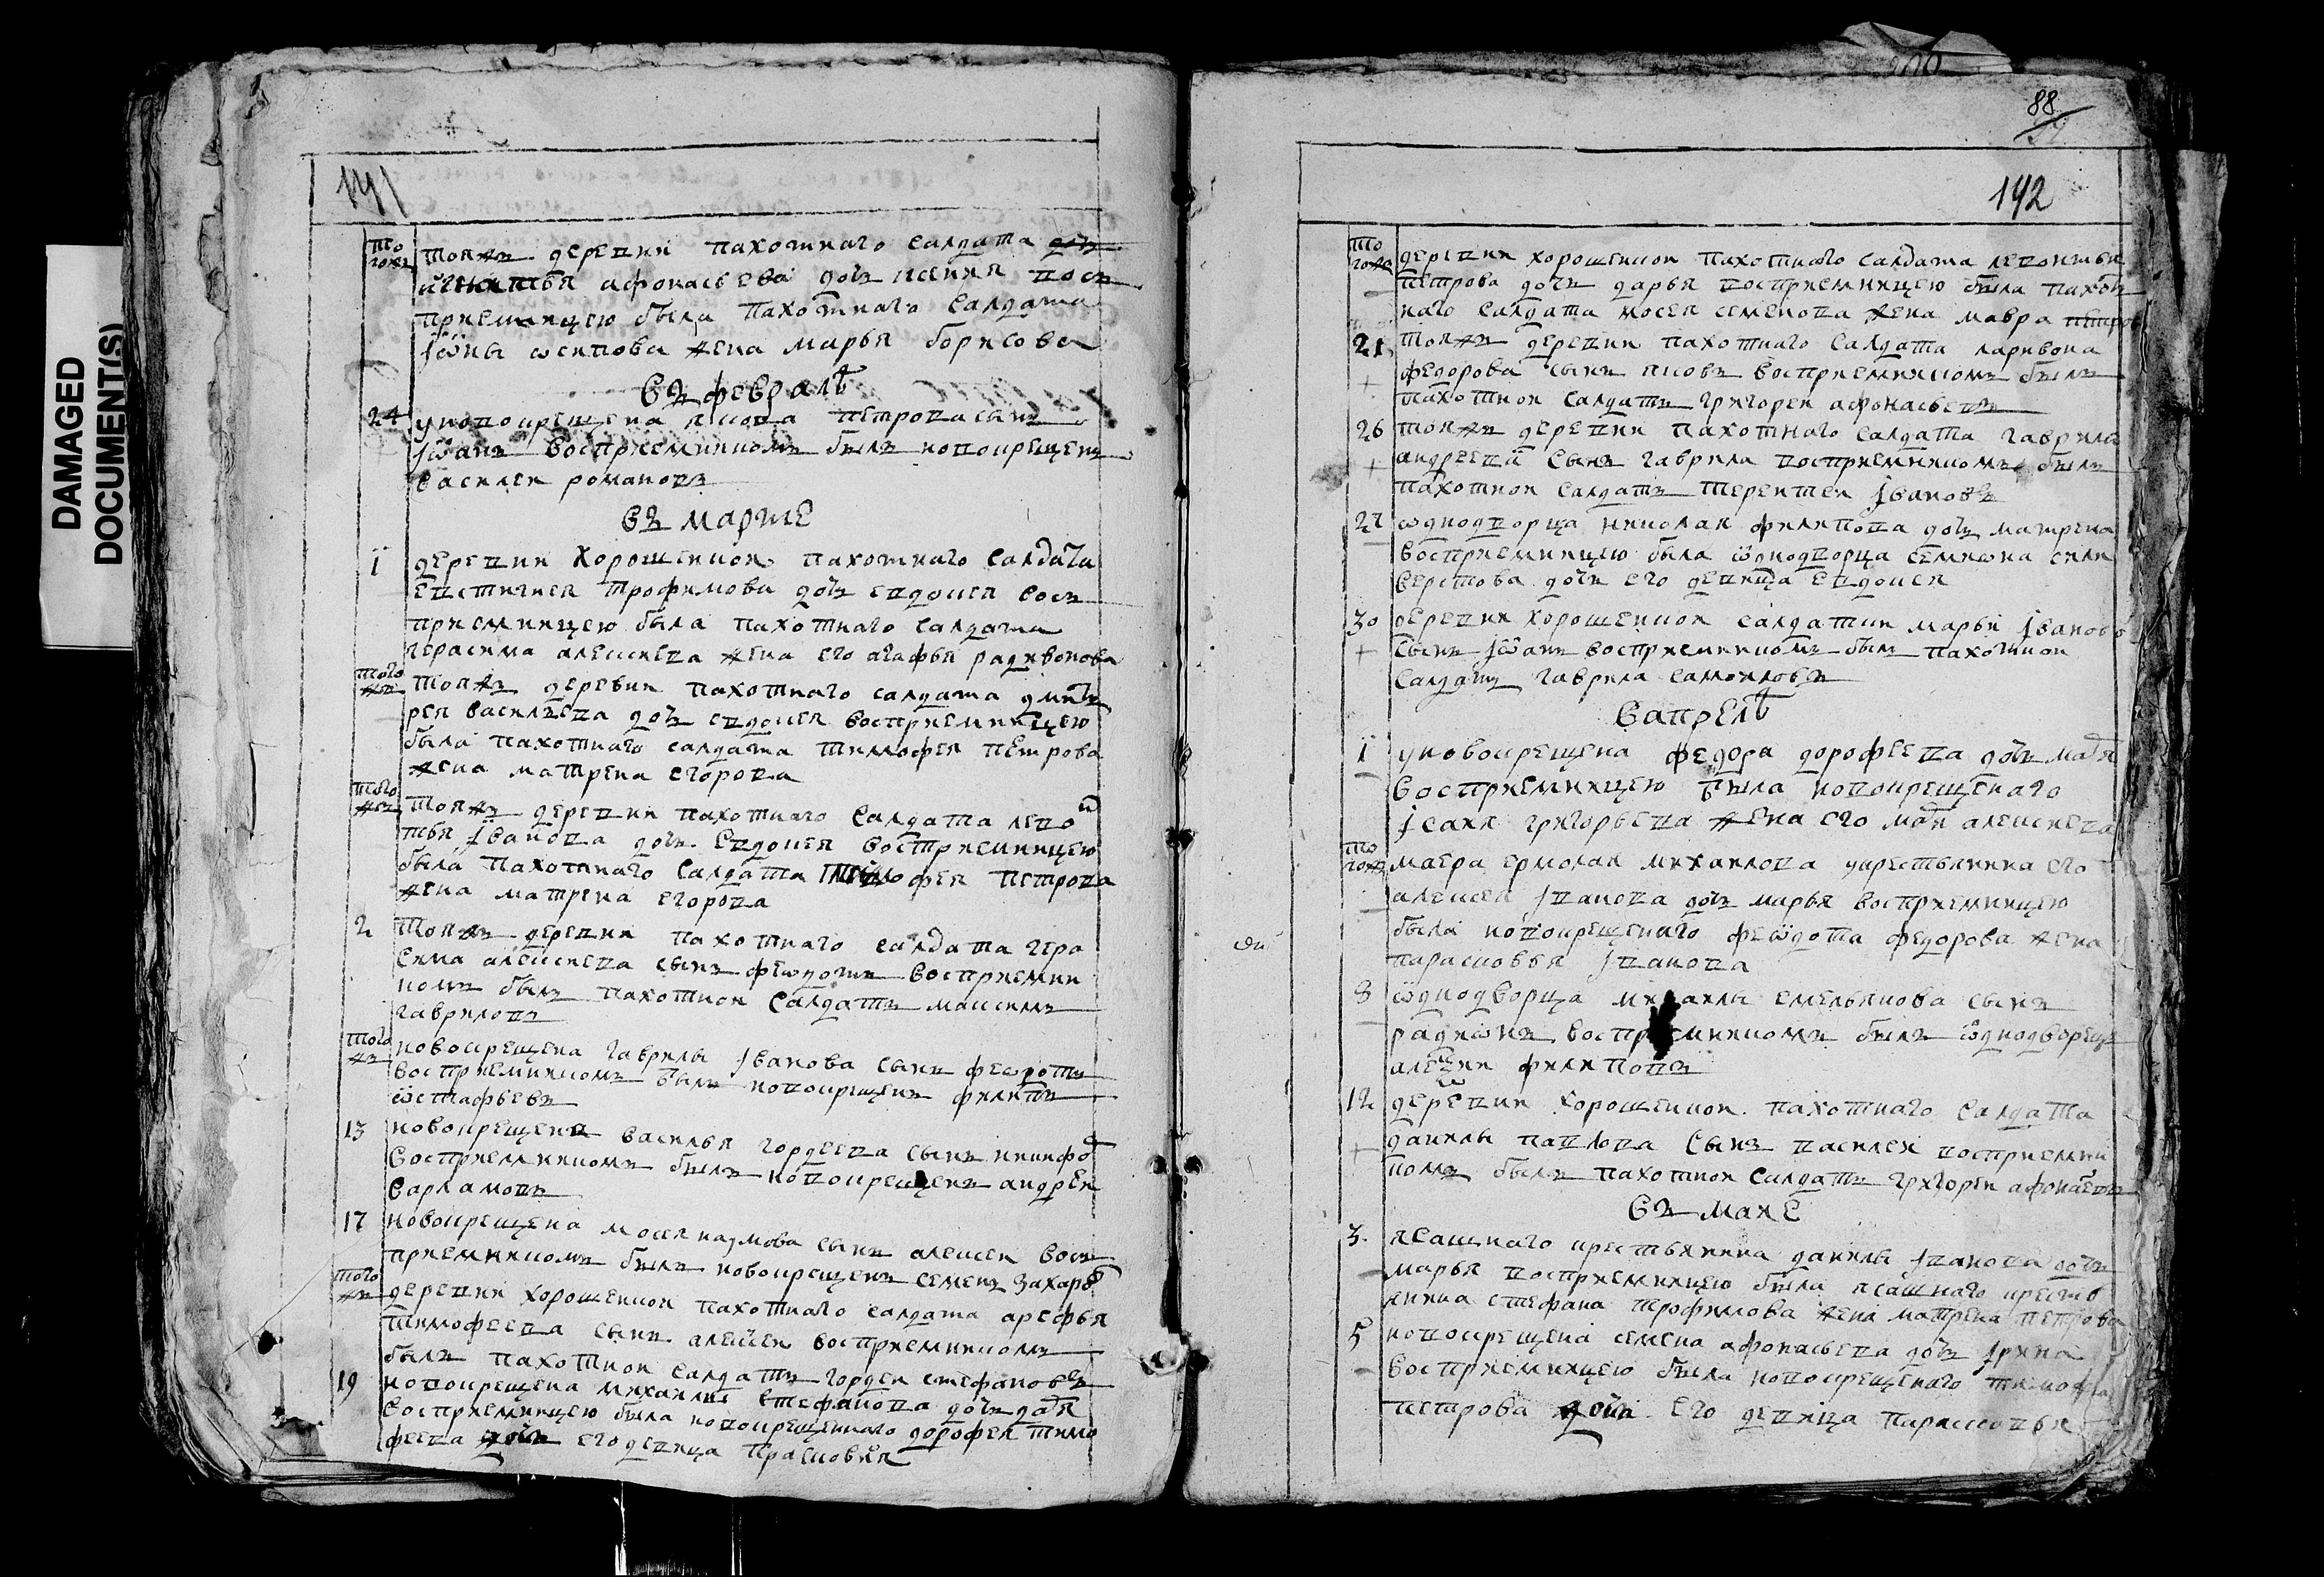 DAMAGED
DOCUMENT(S)
141
того ж
тояж деревни пахотнаго салдата
афонасьева дочь ксения вос
приемницею была пахотнаго салдата
иѡны ѡсипова жена марья борисова
въ февралѣ
24 у новокрещена якова петрова сынъ
иѡанъ восприемникомъ былъ новокрещенъ
василеи романовъ
въ марте
1 деревни хорошенкои пахотнаго салдата
евстигнея трофимова дочь евдокея вос
приемницею была пахотнаго салдата
герасима алексиева жена его агафья радивонова
того ж тояж деревни пахотнаго салдата дмит
рея васильева дочь евдокея восприемницею
была пахотнаго салдата тимофея петрова
жена матрена егорова
того ж тояж деревни пахотнаго салдата левон
тья иванова дочь евдокея восприемницею
была пахотнаго салдата тимофея петрова
жена матрена егорова
2 тояж деревни пахотнаго салдата гера
сима алексиева сынъ феѡдотъ восприемни
комъ былъ пахотнои салдатъ максимъ
гавриловъ
того ж новокрещена гаврилы иванова сынъ феѡдотъ
восприемникомъ былъ новокрещенъ филипъ
ѡстафьевъ
13 новокрещена василья гордеева сынъ никифо
восприемникомъ былъ новокрещенъ андреи
варламовъ
17 новокрещена мосея наумова сынъ алексеи вос
приемникомъ былъ новокрещенъ семенъ захаро
того ж деревни хорошенкои пахотнаго салдата арефья
тимофеева сынъ алексеи восприемникомъ
былъ пахотнои салдатъ гордеи стефановъ
19 новокрещена михаилы стефанова дочь дарья
восприемницею была новокрещеннаго дорофея тимо
феева дочь его девица прасковья
88
142
того ж деревни хорошенкои пахотнаго салдата левонтья
петрова дочь дарья восприемницею была пахот
наго салдата мосея семенова жена мавра петров
21 тояж деревни пахотнаго салдата ларивона
федорова сынъ иѡвъ восприемникомъ былъ
пахотнои салдатъ григореи афонасьевъ
26 тояж деревни пахотнаго салдата гаврилы
андреева сынъ гаврила восприемникомъ былъ
пахотнои салдатъ терентеи ивановъ
27 ѡднодворца николая филипова дочь матрена
восприемницею была ѡднодворца семиѡна сели
верстова дочь его девица евдокея
30 деревни хорошенкои салдатки марьи ивановой
сынъ иѡанъ восприемникомъ былъ пахотнои
салдатъ гаврила самоиловъ
вапрелѣ
1 у новокрещена федора дорофеева дочь мавра
восприемницею была новокрещенаго
исаия григорьева жена его алексиева
того ж маера ермолая михаилова у крестьянина его
алексея иванова дочь марья восприемницею
была новокрещенаго феѡдота федорова жена
парасковья иванова
8 ѡднодворца михаилы емельянова сынъ
радиѡнъ восприемникомъ былъ ѡднодворецъ
алексеи филиповъ
12 деревни хорошенкои пахотнаго салдата
данилы павлова сынъ василеи восприемни
комъ былъ пахотнои салдатъ григореи афонасевъ
въ маие
3 ясашнаго крестьянина данилы иванова дочь
марья восприемницею была ясашнаго кресть
янина стефана трофимова жена матрена петрова
5 новокрещена семена афонасьева дочь ирина
восприемницею была новокрещенаго тимофея
петрова дочь его девица парасковья